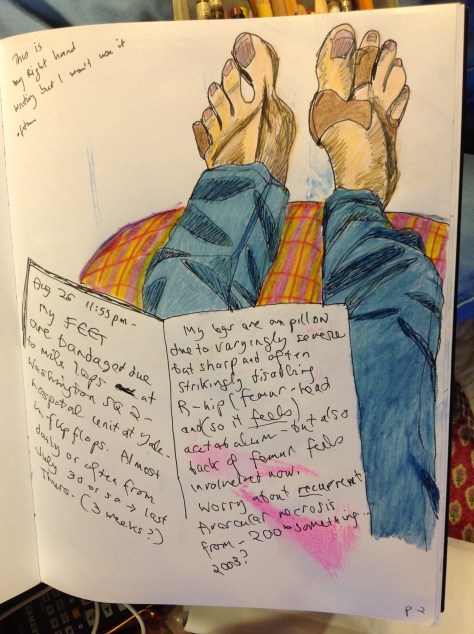 This is
my Right hand
writing but I won't use it
often
Aug 26 11:55pm -
My FEET
are bandaged due
to mile laps at
Washington SQ 2 -
hospital unit at Yale -
in flip flops. Almost
daily or often from
July 30 or so → last
Thurs. (3 weeks?)
My legs are on pillow
due to varyingly severe
but sharp and often
strikingly disabling
R-hip (femur-head
and (so it feels)
acetabalum - but also
back of femur feels
involved now.
Worry about recurrent
Avascular necrosis
from - 200 - something...
2003?
P 2